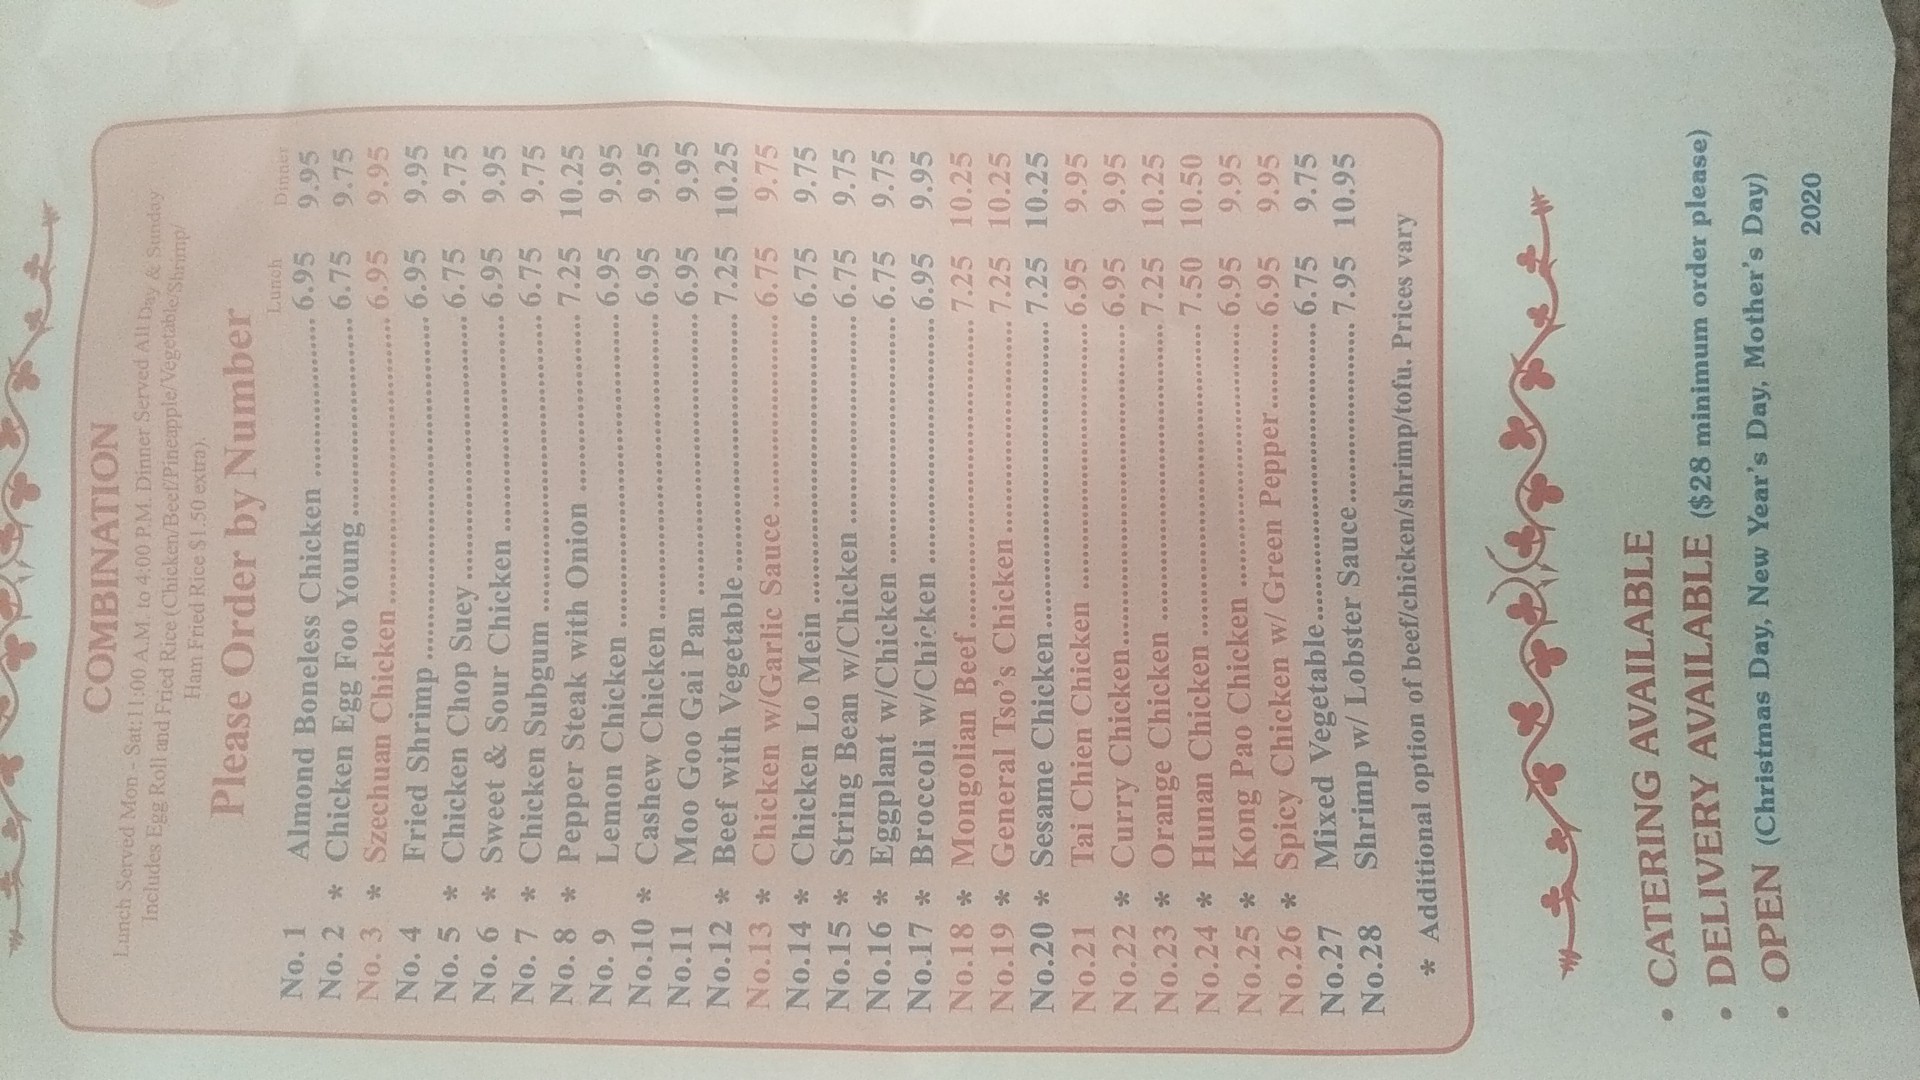 COMBINATION
Lunch Served Mon - Sat:11:00 A.M. to 4:00 P.M. Dinner Served All Day & Sunday
Includes Egg Roll and Fried Rice (Chicken/Beef/Pineapple/Vegetable/Shrimp/
Ham Fried Rice $1.50 extra).
Please Order by Number
Lunch Dinner
No. 1 Almond Boneless Chicken 6.95 9.95
No. 2 * Chicken Egg Foo Young 6.75 9.75
No. 3 * Szechuan Chicken 6.95 9.95
No. 4 Fried Shrimp 6.95 9.95
No. 5 * Chicken Chop Suey 6.75 9.75
No. 6 * Sweet & Sour Chicken 6.95 9.95
No. 7 * Chicken Subgum 6.75 9.75
No. 8 * Pepper Steak with Onion 7.25 10.25
No. 9 Lemon Chicken 6.95 9.95
No.10 * Cashew Chicken 6.95 9.95
No.11 Moo Goo Gai Pan 6.95 9.95
No.12 * Beef with Vegetable 7.25 10.25
No.13 * Chicken w/Garlic Sauce 6.75 9.75
No.14 * Chicken Lo Mein 6.75 9.75
No.15 * String Bean w/Chicken 6.75 9.75
No.16 * Eggplant w/Chicken 6.75 9.75
No.17 * Broccoli w/Chicken 6.95 9.95
No.18 * Mongolian Beef 7.25 10.25
No.19 * General Tso's Chicken 7.25 10.25
No.20 * Sesame Chicken 7.25 10.25
No.21 Tai Chien Chicken 6.95 9.95
No.22 * Curry Chicken 6.95 9.95
No.23 * Orange Chicken 7.25 10.25
No.24 * Hunan Chicken 7.50 10.50
No.25 * Kong Pao Chicken 6.95 9.95
No.26 * Spicy Chicken w/ Green Pepper 6.95 9.95
No.27 Mixed Vegetable 6.75 9.75
No.28 Shrimp w/ Lobster Sauce 7.95 10.95
* Additional option of beef/chicken/shrimp/tofu. Prices vary
• CATERING AVAILABLE
• DELIVERY AVAILABLE ($28 minimum order please)
• OPEN (Christmas Day, New Year's Day, Mother's Day)
2020